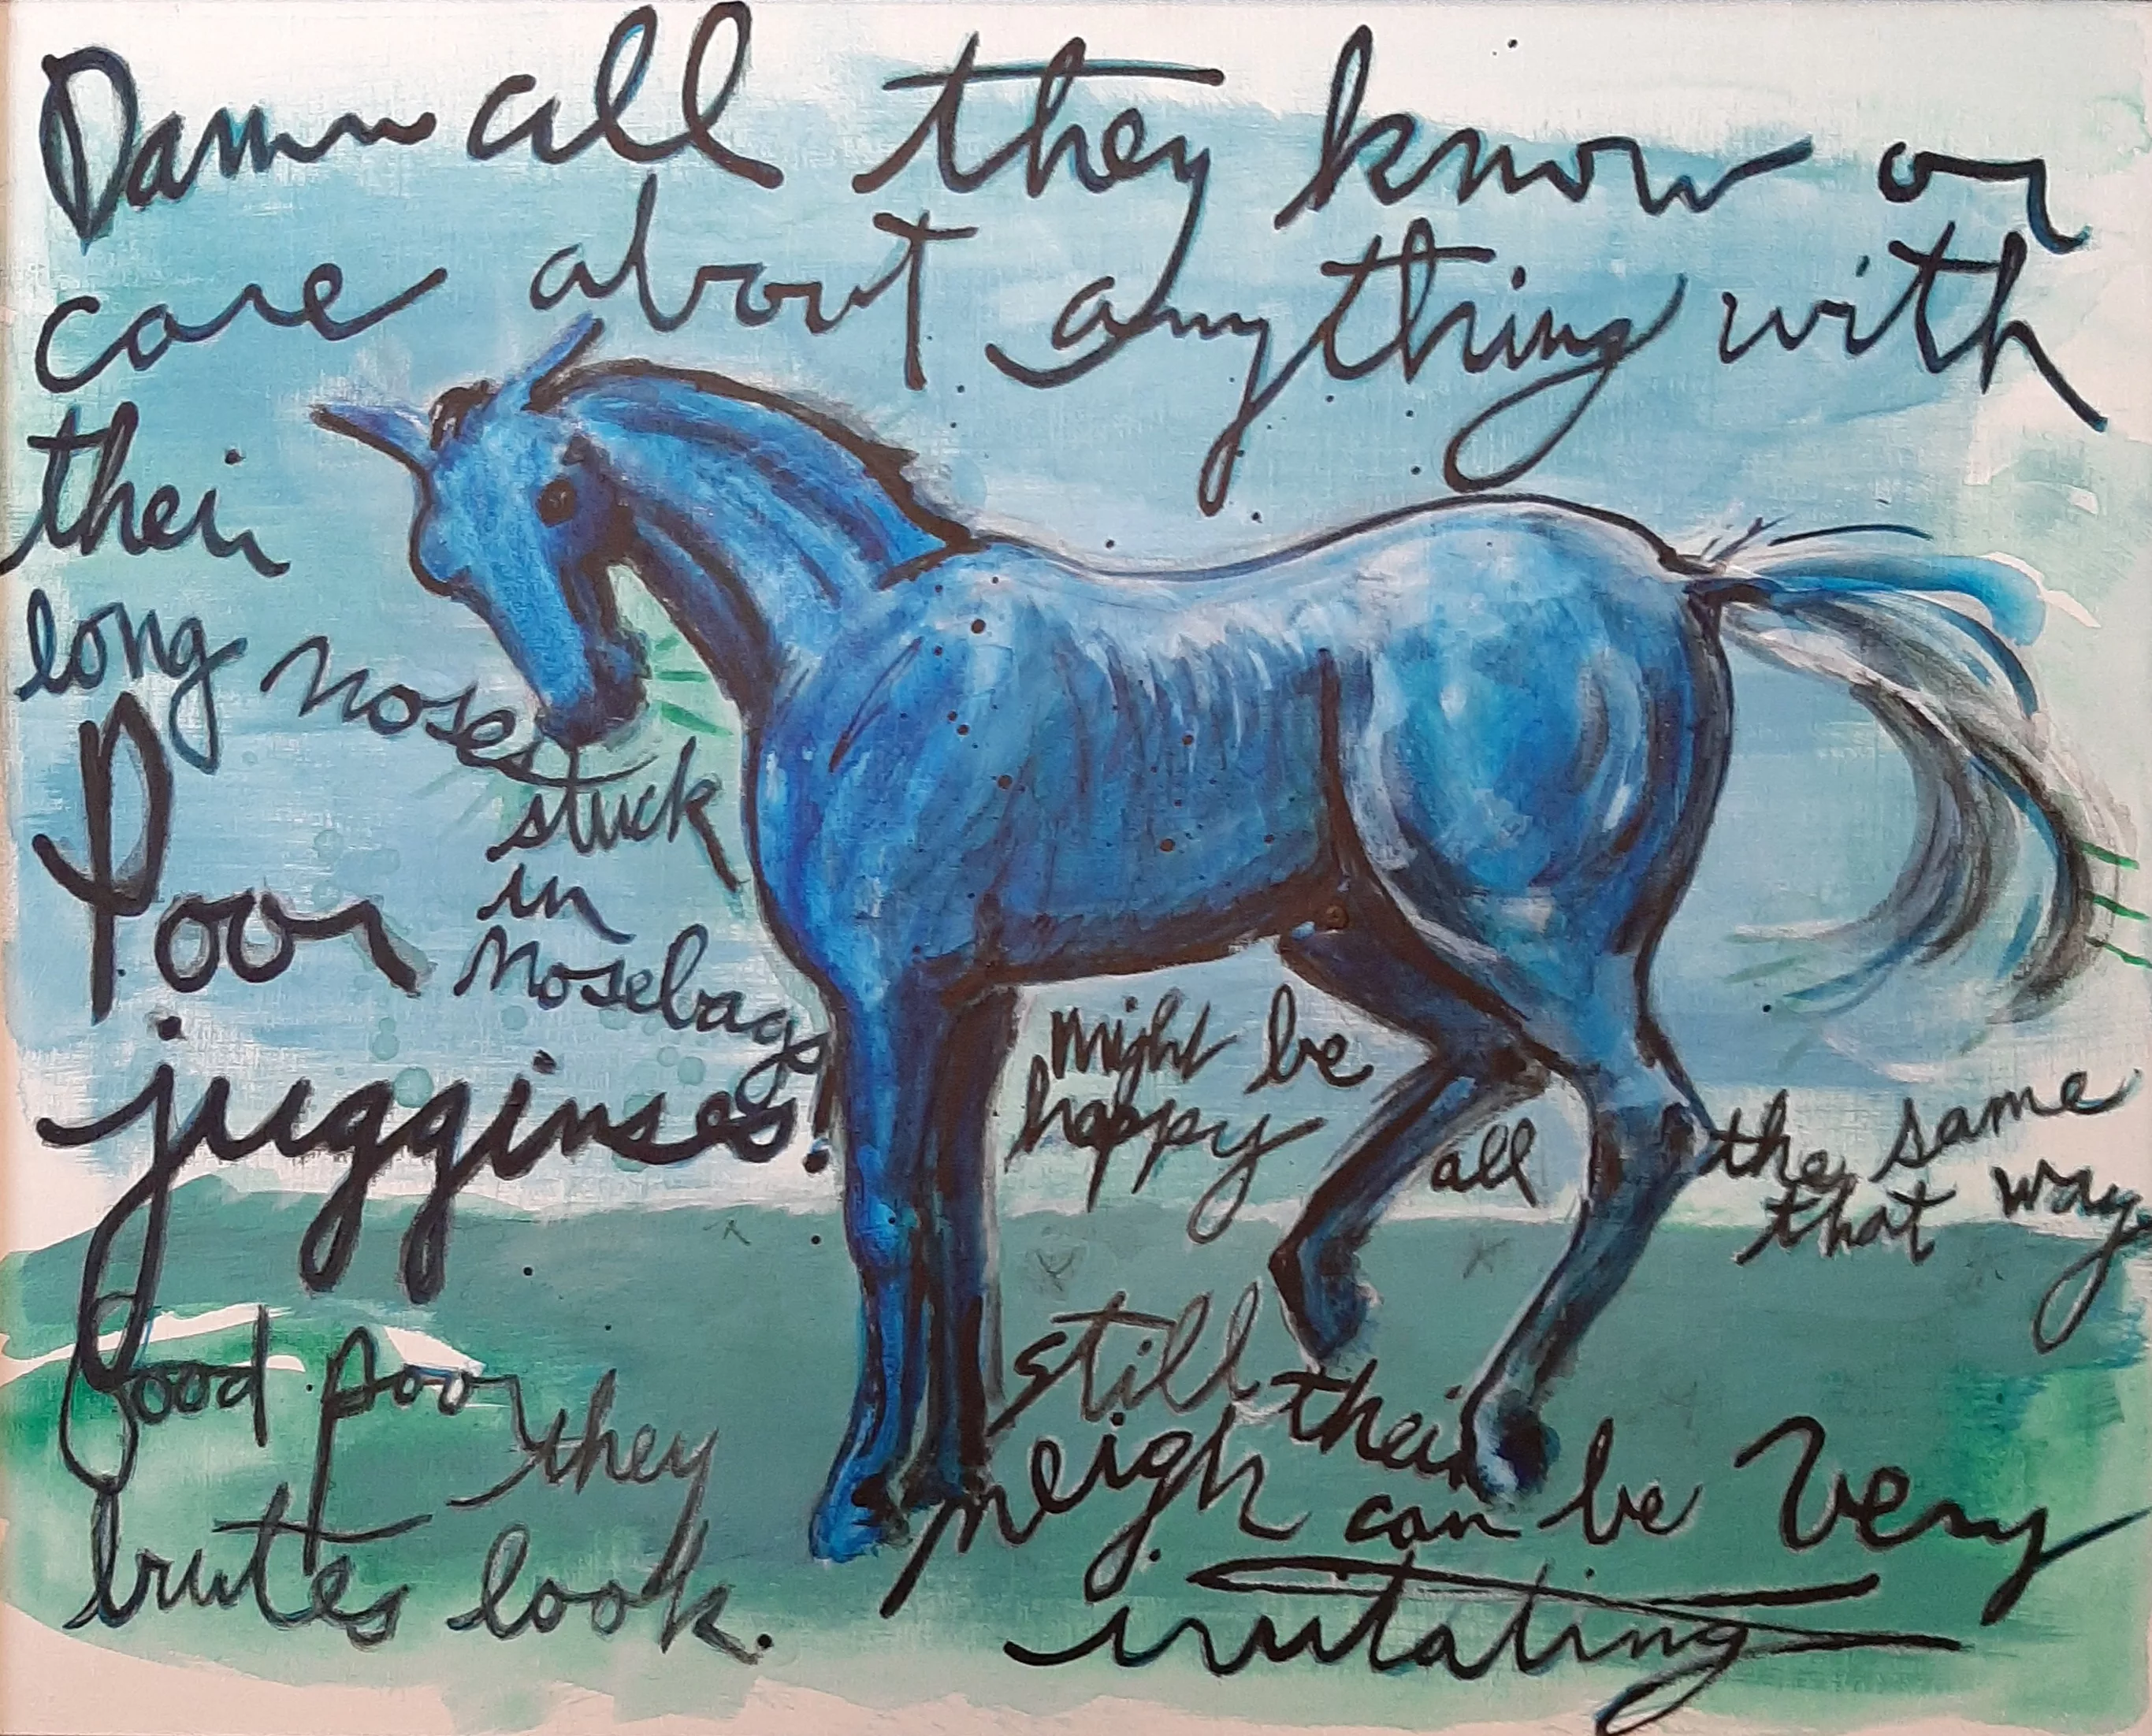 Damn all they know or
care about anything with
their
long noses
stuck
in
nosebags
Poor
jugginses!
Good poor
they
brutes look.
might be
happy
all
the same
that way
still their
neigh can be very
irritating